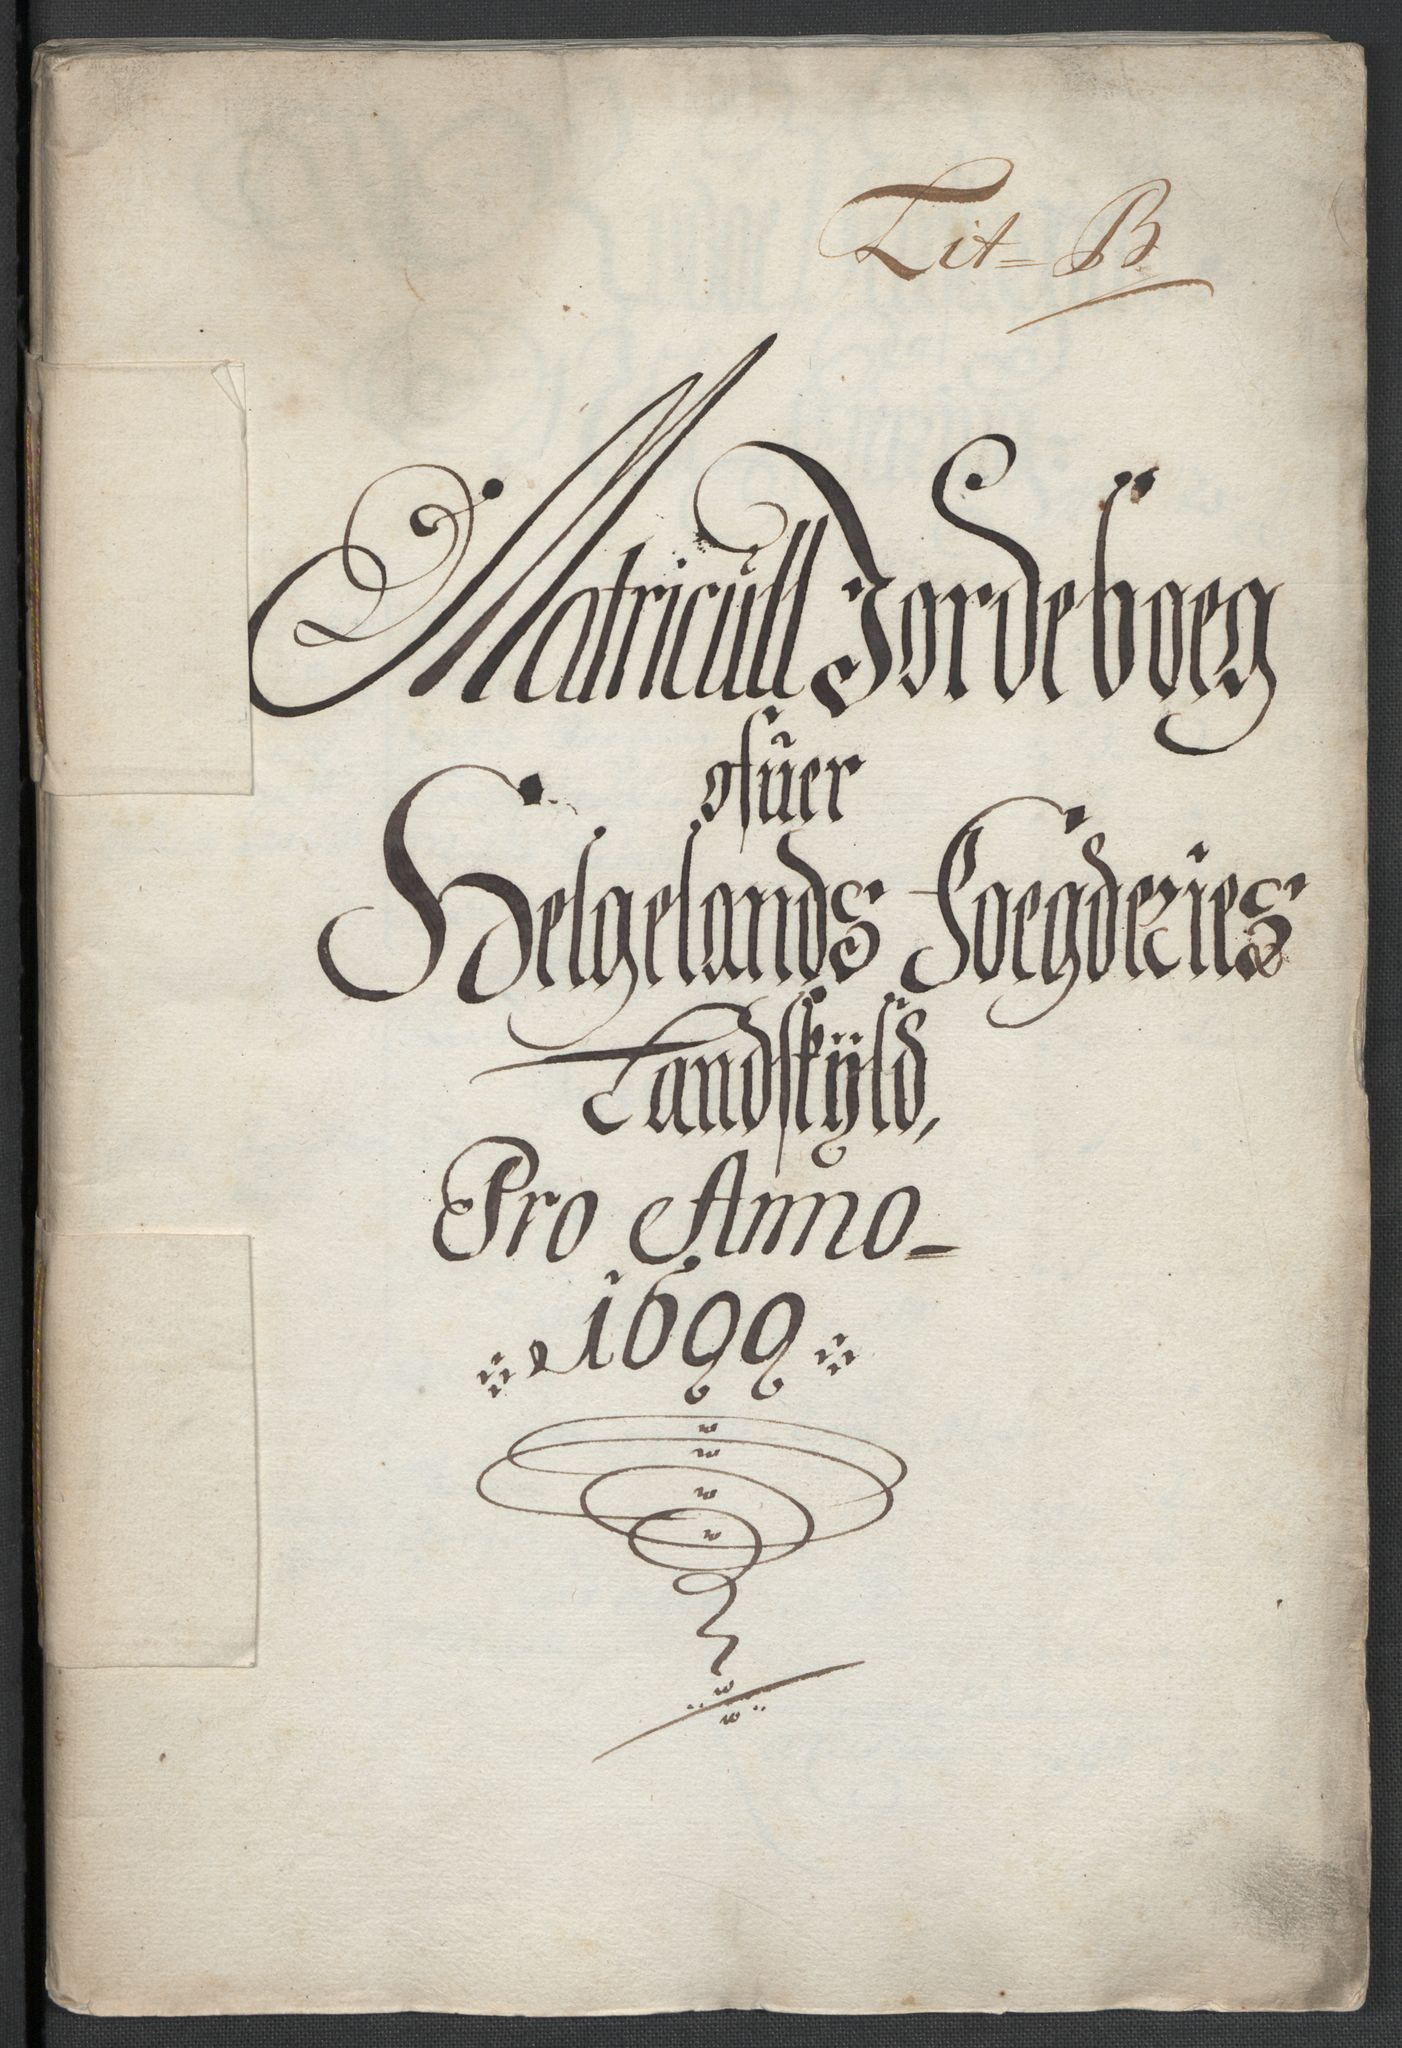 Lit- B
Matricull Jordeboeg
ofuer
Helgelands Foegderies
Landskÿld,
Pro Anno-
1699